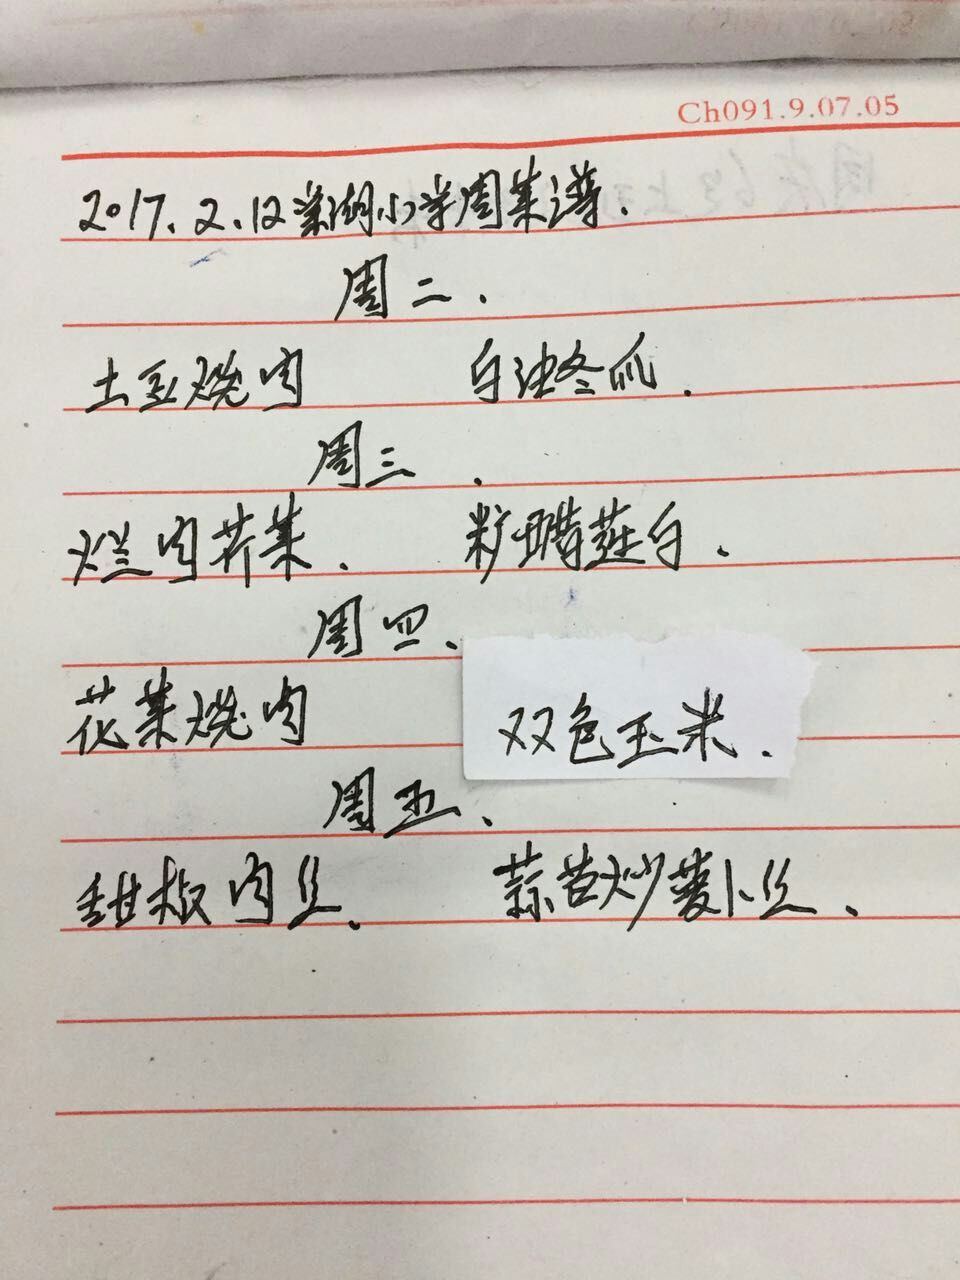 Ch091.9.07.05
2017.2.12 湖小学周菜谱.
周二.
土豆烧肉 白油冬瓜.
周三.
烂肉芹菜. 茭白.
周四.
花菜烧肉 双色玉米.
周五.
甜椒肉丝. 蒜苗炒萝卜丝.